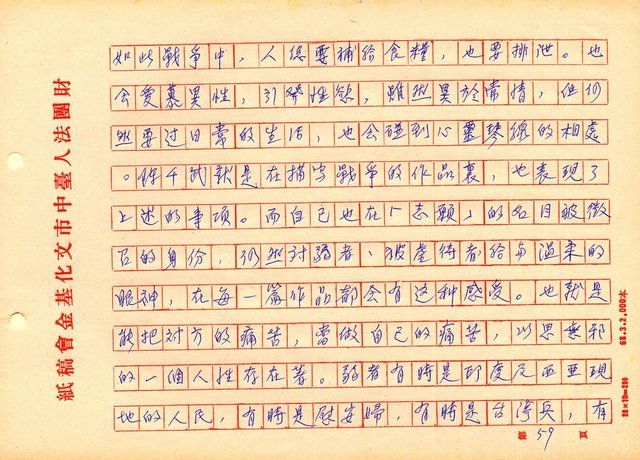 如此戰爭中，人總要補給食糧，也要排泄。也
会愛慕異性，引發性慾，雖然異於常情，但仍
然要过日常的生活，也会碰到心靈琴線的相處
。陳千武就是在描写戰爭的作品裏，也表現了
上述的事項。而自己也在「志願」的名目被徵
召的身份，仍然对弱者、被虐待者給与溫柔的
眼神，在每一篇作品都会有这种感受。也就是
能把对方的痛苦，當做自己的痛苦，以思無邪
的一個人性存在著。弱者有時是印度尼西亞現
地的人民，有時是慰安婦，有時是台湾兵，有
第59頁
財團法人臺中市文化基金會稿紙
68.3.2,000本
20×10=200